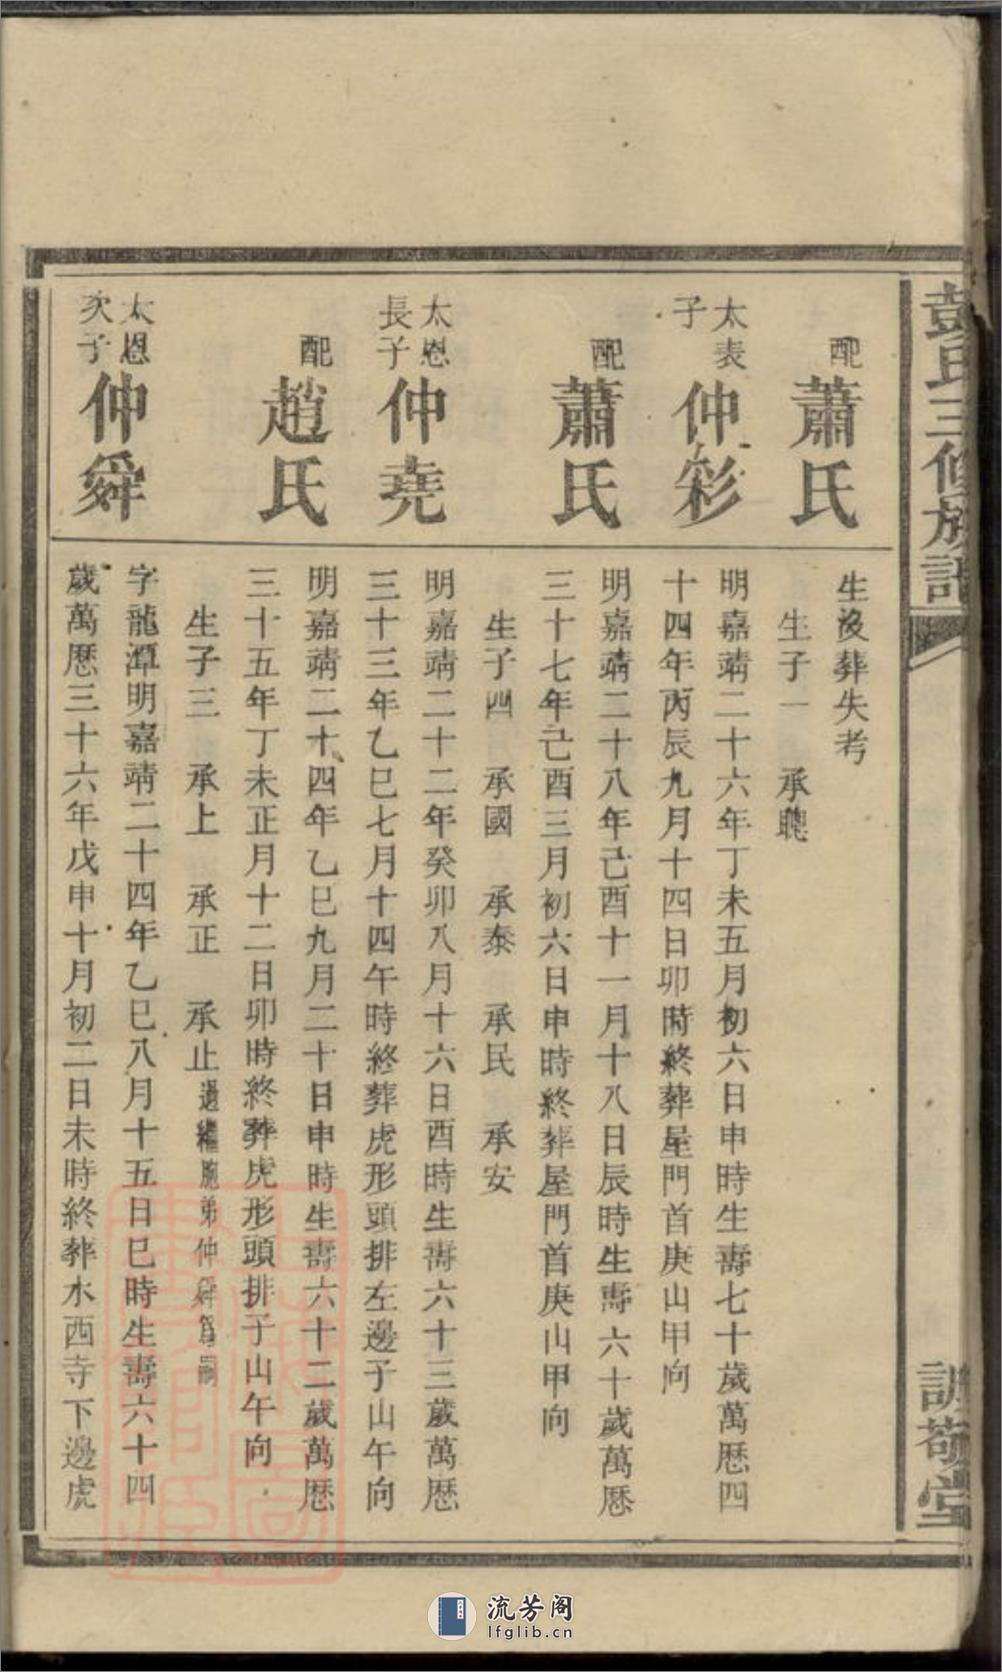 彭氏三修族譜
敬堂
配蕭氏
生沒葬失考
生子一　承聰
太表子仲彩
明嘉靖二十六年丁未五月初六日申時生壽七十歲萬曆四
十四年丙辰九月十四日卯時終葬屋門首庚山甲向
配蕭氏
明嘉靖二十八年己酉十一月十八日辰時生壽六十歲萬曆
三十七年己酉三月初六日申時終葬屋門首庚山甲向
生子四　承國　承泰　承民　承安
太恩長子仲堯
明嘉靖二十二年癸卯八月十六日酉時生壽六十三歲萬曆
三十三年乙巳七月十四午時終葬虎形頭排左邊子山午向
配趙氏
明嘉靖二十四年乙巳九月二十日申時生壽六十二歲萬曆
三十五年丁未正月十二日卯時終葬虎形頭排子山午向
生子三　承上　承正　承止過繼胞弟仲舜為嗣
太恩次子仲舜
字龍潭明嘉靖二十四年乙巳八月十五日巳時生壽六十四
歲萬曆三十六年戊申十月初二日未時終葬水西寺下邊虎
流芳阁
lfglib.cn